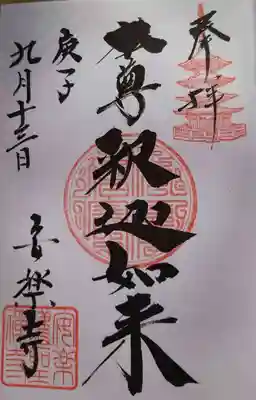 奉拝
本尊釈迦如来
庚子
九月十三日
安楽寺